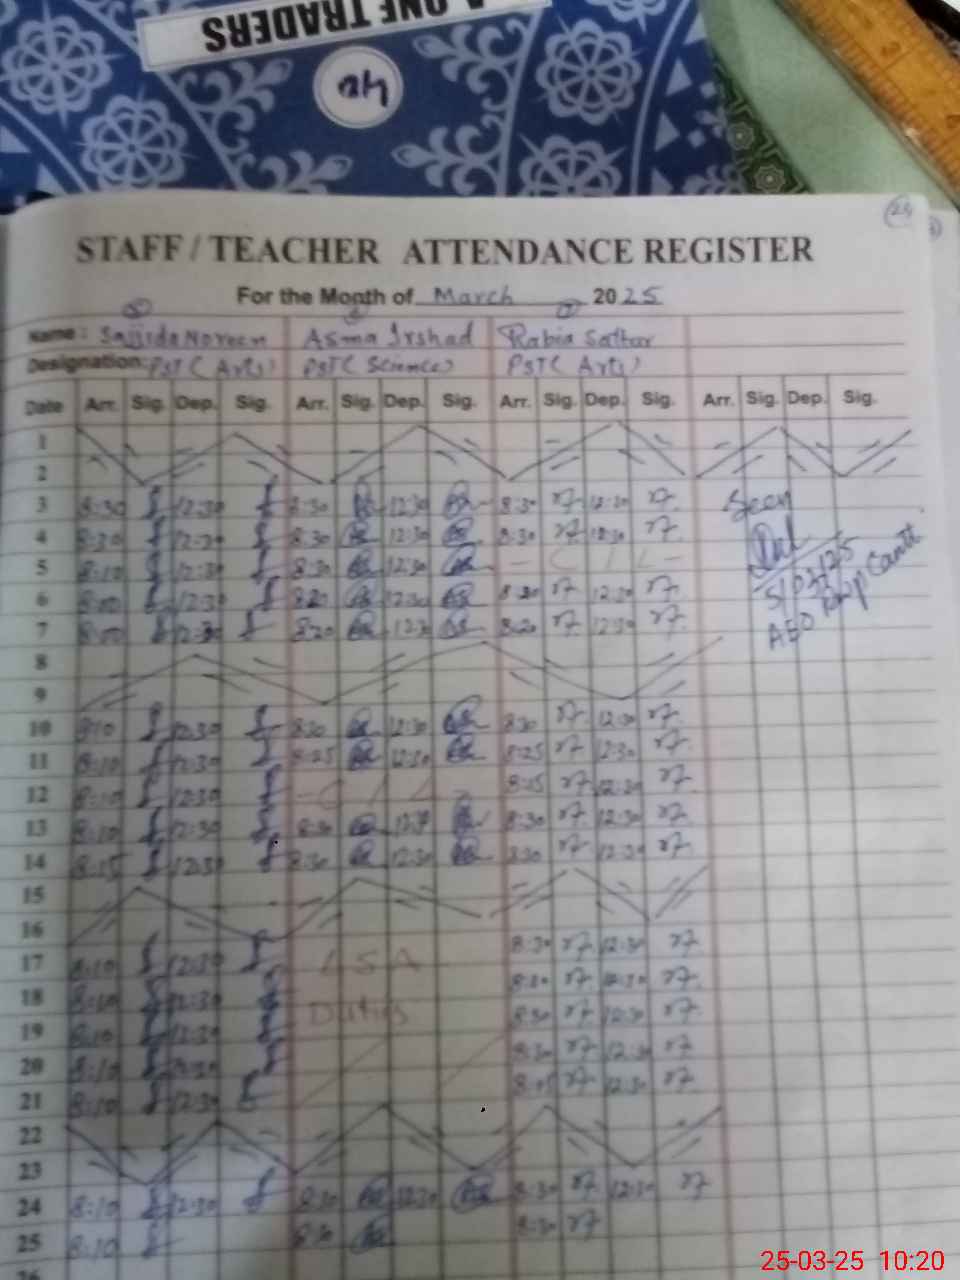 A ONE TRADERS
24
STAFF / TEACHER ATTENDANCE REGISTER
For the Month of March 2025
Name: Sajjida Noreen Asma Irshad Rabia Sattar
Designation: PST (Arts) PST (Science) PST (Arts)
Date Arr. Sig. Dep. Sig. Arr. Sig. Dep. Sig. Arr. Sig. Dep. Sig. Arr. Sig. Dep. Sig.
1
2
3 8:30 12:30 8:30 12:30 8:30 12:30 Seen
4 8:30 12:30 8:30 12:30 8:30 12:30
5 8:10 12:30 8:30 12:30 - C / L - 5/03/25
6 8:00 12:30 8:20 12:30 8:20 12:30
7 8:00 12:30 8:20 12:30 8:20 12:30 AEO Cantt
8
9
10 8:10 12:30 8:30 12:30 8:30 12:30
11 8:10 12:30 8:25 12:30 8:25 12:30
12 8:10 12:30 - C / L - 8:15 12:30
13 8:10 12:30 8:30 12:30 8:30 12:30
14 8:15 12:30 8:30 12:30 8:30 12:30
15
16
17 8:10 12:30 LSA 8:30 12:30
18 8:10 12:30 Duties 12:30
19 8:10 12:30 8:30 12:30
20 8:10 12:30 8:30 12:30
21 8:10 12:30 8:05 12:30
22
23
24 8:10 12:30 8:30 12:30 8:30 12:30
25 8:10 8:30 8:30
26
25-03-25 10:20